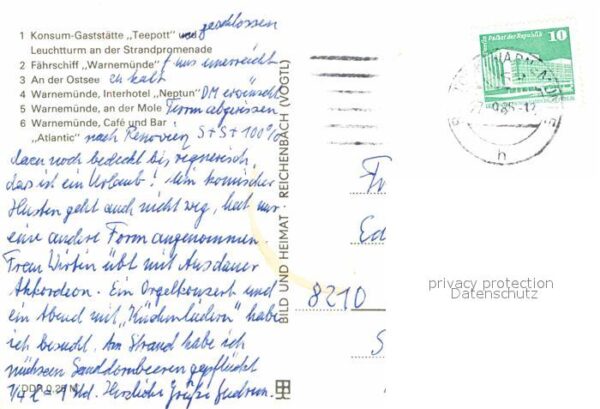 geschlossen
1 Konsum-Gaststätte „Teepott" und
Leuchtturm an der Strandpromenade
2 Fährschiff „Warnemünde" f. uns unerreicht
3 An der Ostsee eh kalt
4 Warnemünde, Interhotel „Neptun" DM erwünscht
5 Warnemünde, an der Mole Turm abgerissen
6 Warnemünde, Café und Bar
„Atlantic" nach Renovierg S+S+100%
dazu noch bedeckt bis regnerisch,
das ist ein Urlaub! Mein komischer
Husten geht auch nicht weg, hat nur
eine andere Form angenommen.
Frau Wirtin übt mit Ausdauer
Akkordeon. Ein Orgelkonzert und
ein Abend mit „Küchenliedern" habe
ich besucht. Am Strand habe ich
mühsam Sanddornbeeren gepflückt
1/4 l = 1 Std. Herzliche Grüße Gudrun.
DDR 0,25 M
BILD UND HEIMAT · REICHENBACH (VOGTL)
10
Berlin Palast der Republik
DDR
h
Fr
Ed
8210
S
privacy protection
Datenschutz